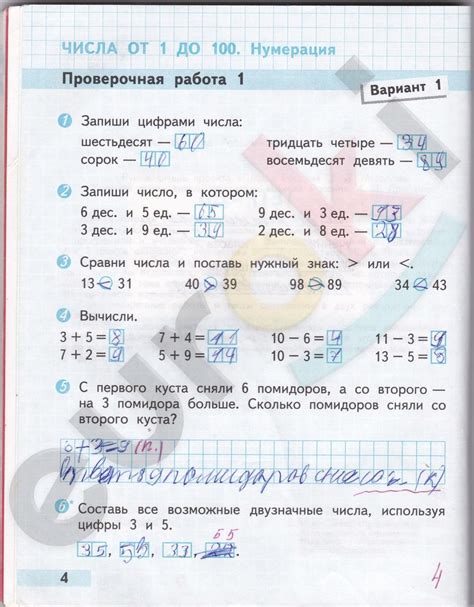 ЧИСЛА ОТ 1 ДО 100. Нумерация
Проверочная работа 1
Вариант 1
1 Запиши цифрами числа:
шестьдесят — 60 тридцать четыре — 34
сорок — 40 восемьдесят девять — 89
2 Запиши число, в котором:
6 дес. и 5 ед. — 65 9 дес. и 3 ед. — 93
3 дес. и 9 ед. — 39 2 дес. и 8 ед. — 28
3 Сравни числа и поставь нужный знак: > или <.
13 < 31 40 > 39 98 > 89 34 < 43
4 Вычисли.
3 + 5 = 8 7 + 4 = 11 10 − 6 = 4 11 − 3 =
7 + 2 = 9 5 + 9 = 14 10 − 3 = 7 13 − 5 = 8
5 С первого куста сняли 6 помидоров, а со второго —
на 3 помидора больше. Сколько помидоров сняли со
второго куста?
6+3=9 (п.)
помидоров
6 Составь все возможные двузначные числа, используя
цифры 3 и 5.
55
35, 53, 33,
4
4
euroki